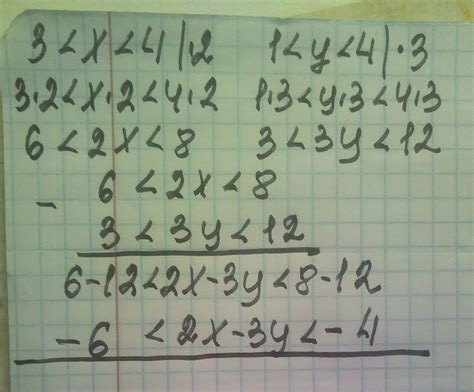 3 < x < 4 | · 2    1 < y < 4 | · 3
3·2 < x·2 < 4·2    1·3 < y·3 < 4·3
6 < 2x < 8    3 < 3y < 12
- 6 < 2x < 8
3 < 3y < 12
6-12 < 2x-3y < 8-12
-6 < 2x-3y < -4